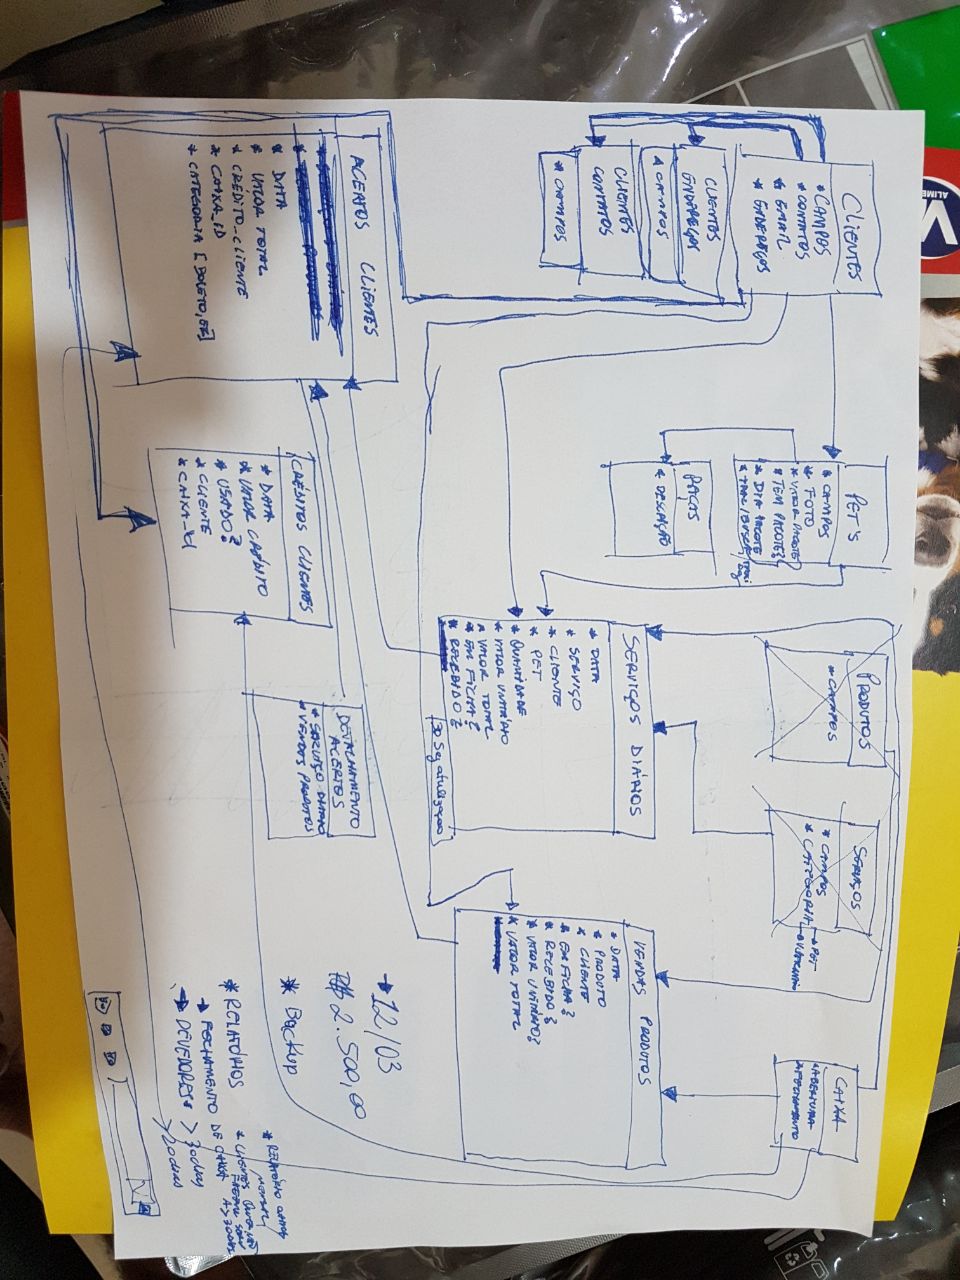 CLIENTES
* CAMPOS
* CONTATOS
* EMAIL
* ENDEREÇOS
CLIENTES
ENDEREÇOS
* CAMPOS
CLIENTES
CONTATOS
* CAMPOS
PET'S
* CAMPOS
* FOTO
* VALOR PACOTE
* TEM PACOTE?
* DIA PACOTE
RAÇAS
* DESCRIÇÃO
PRODUTOS
* CAMPOS
SERVIÇOS
* CAMPOS
* CATEGORIA
PET
CAIXA
* ABERTURA
* FECHAMENTO
SERVIÇOS DIÁRIOS
* DATA
* SERVIÇO
* CLIENTE
* PET
* QUANTIDADE
* VALOR UNITÁRIO
* VALOR TOTAL
* EM FICHA?
* RECEBIDO?
30 Seg atulização
VENDAS PRODUTOS
* DATA
* PRODUTO
* CLIENTE
* EM FICHA?
* RECEBIDO?
* VALOR UNITÁRIO?
* VALOR TOTAL
ACERTOS CLIENTES
* DATA
* VALOR TOTAL
* CRÉDITO_CLIENTE
* CAIXA_ID
* CATEGORIA [BOLETO, ETC]
CRÉDITOS CLIENTES
* DATA
* VALOR CRÉDITO
* USADO?
* CLIENTE
* CAIXA_id
DETALHAMENTO
ACERTOS
* SERVIÇO DIÁRIO
* VENDAS PRODUTOS
→ 12/03
R$ 2.500,00
* Backup
* RELATÓRIOS
→ FECHAMENTO DE CAIXA
→ DEVEDORES * > 30 dias
> 20 dias
* RELATÓRIO
MENSAL
* CLIENTES QUE NÃO